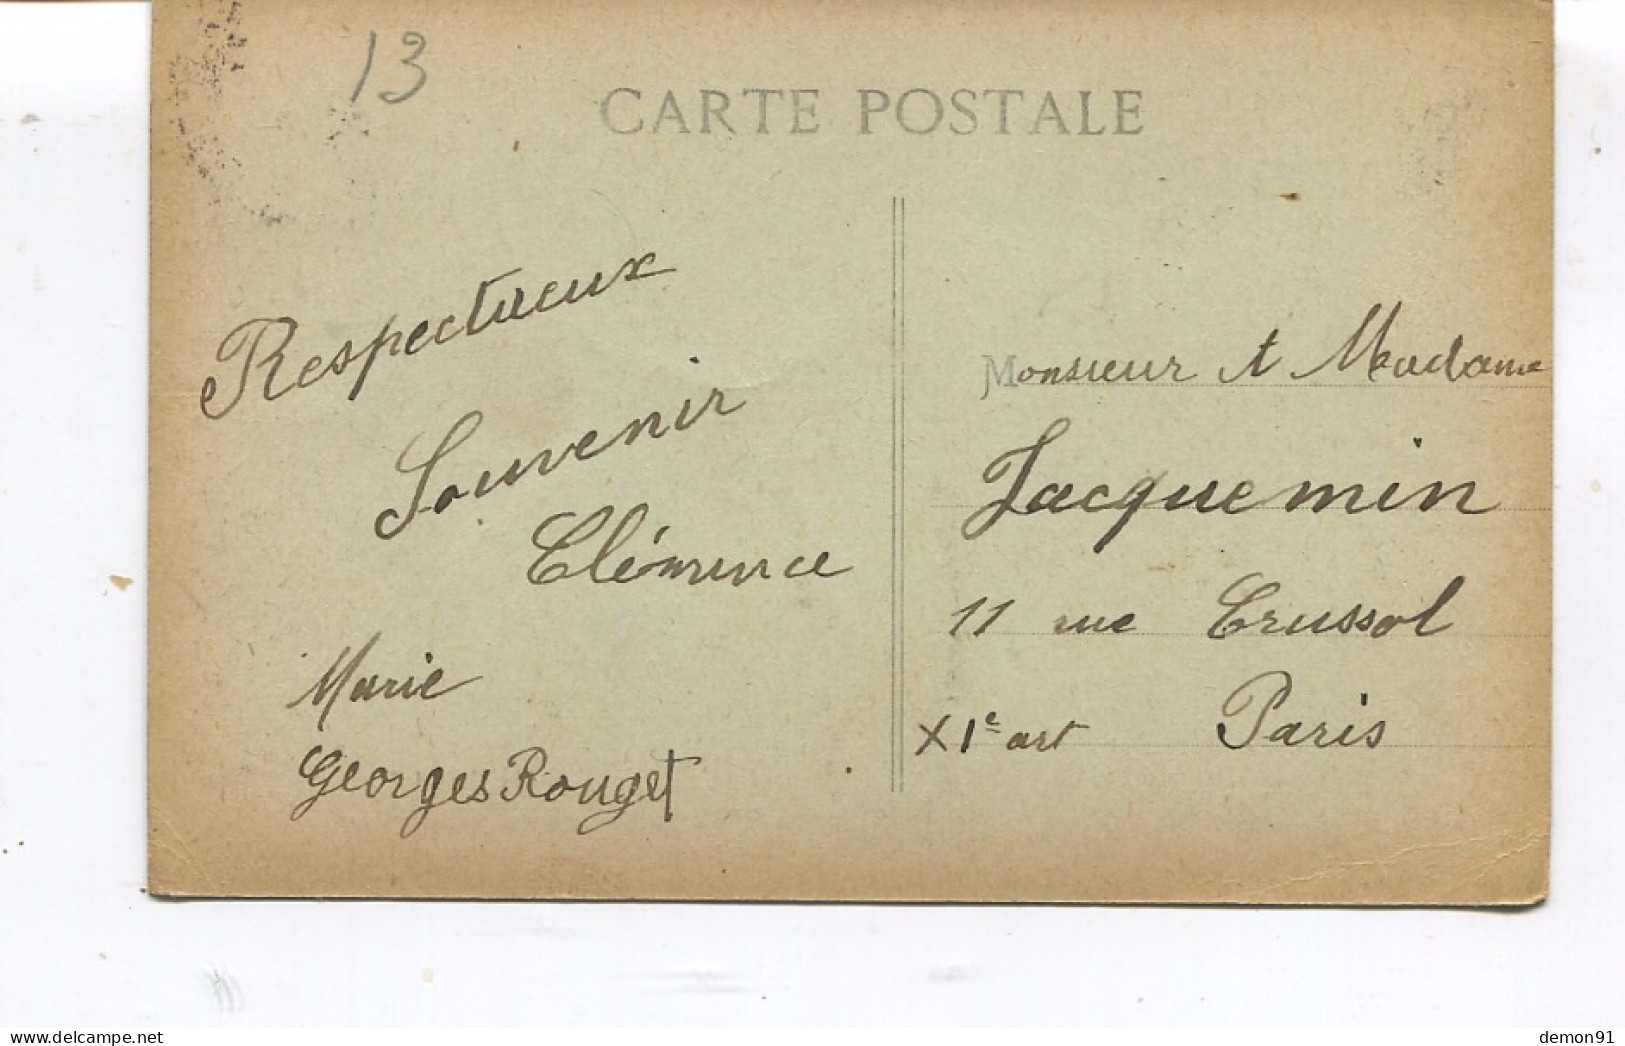 13
CARTE POSTALE
Respectueux
Souvenir
Clémence
Marie
Georges Rouget
Monsieur et Madame
Jacquemin
11 rue Crussol
XIe art Paris
www.delcampe.net
demon91